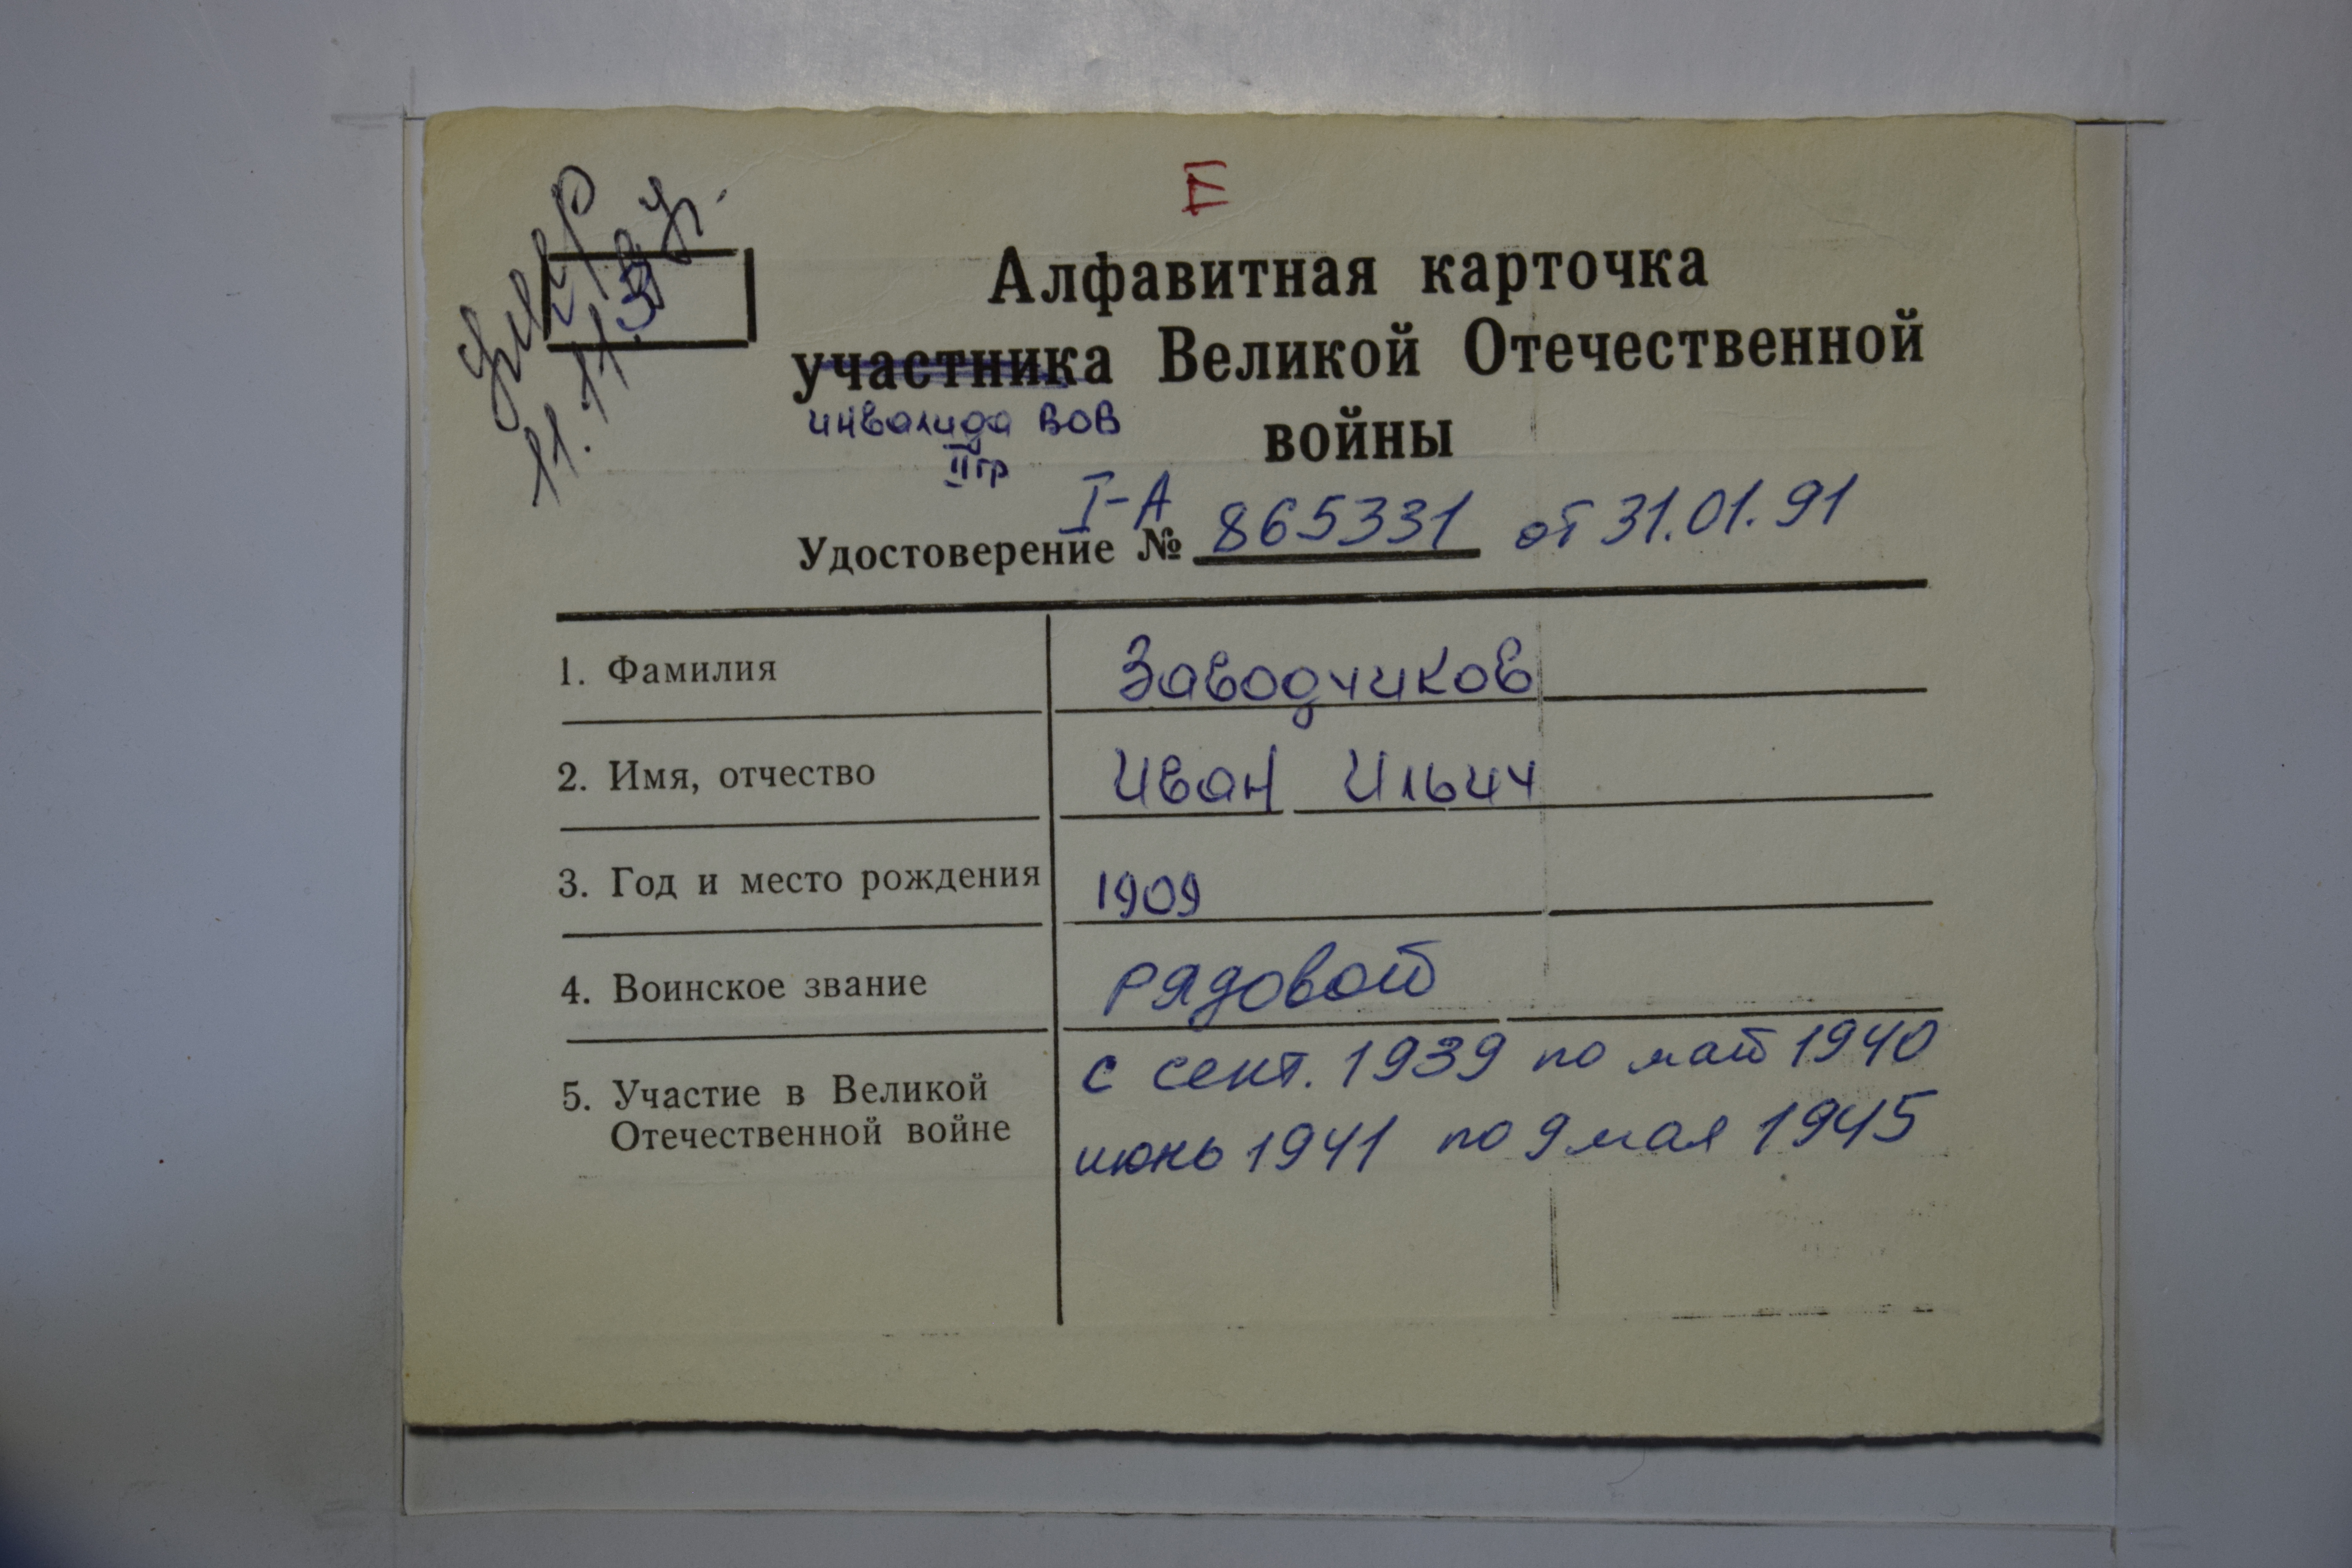 Е
умер
З
Алфавитная карточка
участника Великой Отечественной
инвалида ВОВ
войны
II гр
I-А
Удостоверение № 865331 от 31.01.91
1. Фамилия Заводчиков
2. Имя, отчество Иван Ильич
3. Год и место рождения 1909
4. Воинское звание рядовой
5. Участие в Великой с сент. 1939 по май 1940
Отечественной войне июнь 1941 по 9 мая 1945